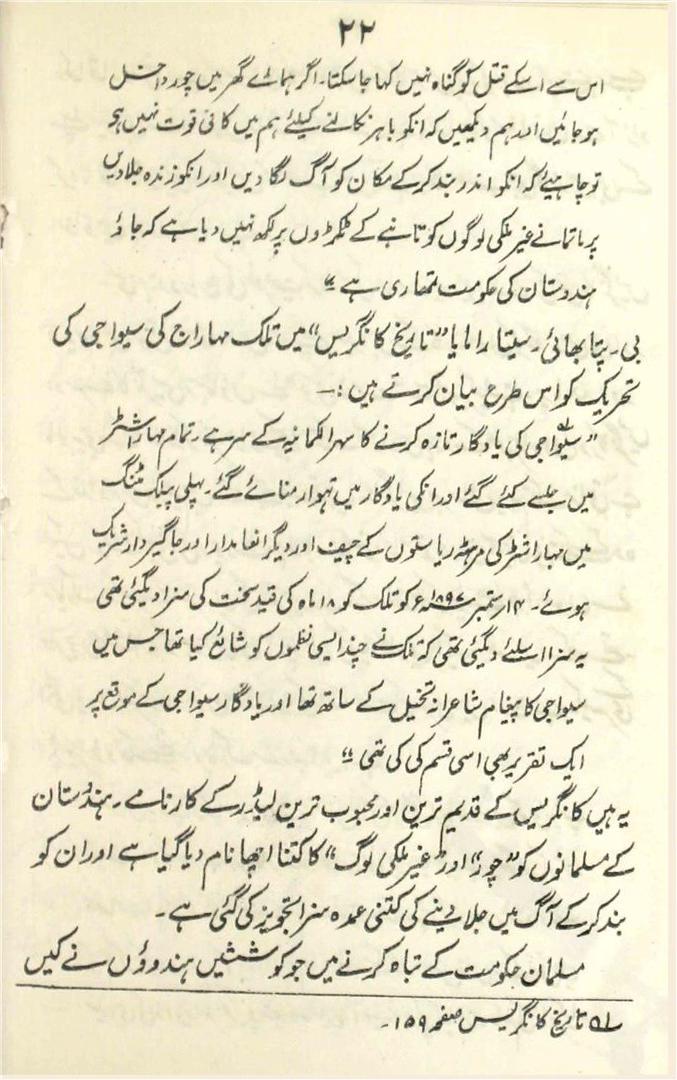 ۲۲
اس سے اسکے قتل کو گناہ نہیں کہا جا سکتا۔ اگر ہمارے گھر میں چور داخل
ہو جائیں اور ہم دیکھیں کہ انکو باہر نکالنے کیلئے ہم میں کافی قوت نہیں ہو
تو چاہیئے کہ انکو اندر بند کر کے مکان کو آگ لگا دیں اور انکو زندہ جلادیں
پرماتما نے غیر ملکی لوگوں کو تانبے کے ٹکڑوں پر لکھ نہیں دیا ہے کہ جاؤ
ہندوستان کی حکومت تمھاری ہے "
بی۔ پتا بھائی۔ سیتا رامایا "تاریخ کانگریس" میں تلک مہاراج کی سیواجی کی
تحریک کو اس طرح بیان کرتے ہیں :۔
"سیواجی کی یادگار تازہ کرنے کا سہرا لکمانیہ کے سر ہے۔ تمام مہاراشٹر
میں جلسے کئے گئے اور انکی یادگار میں تہوار منائے گئے۔ پہلی پبلک مٹنگ
میں مہاراشٹر کی مرہٹہ ریاستوں کے چیف اور دیگر انعامدار اور جاگیردار شریک
ہوئے۔ ۱۴ ستمبر ۱۸۹۷ء کو تلک کو ۱۸ ماہ کی قید سخت کی سزا دیگئی تھی
یہ سزا اسلئے دیگئی تھی کہ تلک نے چند ایسی نظموں کو شائع کیا تھا جس میں
سیواجی کا پیغام شاعرانہ تخیل کے ساتھ تھا اور یادگار سیواجی کے موقع پر
ایک تقریر بھی اسی قسم کی کی تھی "
یہ ہیں کانگریس کے قدیم ترین اور محبوب ترین لیڈر کے کارنامے۔ ہندوستان
کے مسلمانوں کو "چور" اور "غیر ملکی لوگ" کا کتنا اچھا نام دیا گیا ہے اور ان کو
بند کر کے آگ میں جلا دینے کی کتنی عمدہ سزا تجویز کی گئی ہے۔
مسلمان حکومت کے تباہ کرنے میں جو کوششیں ہندوؤں نے کیں
لہ تاریخ کانگریس صفحہ ۱۵۹۔